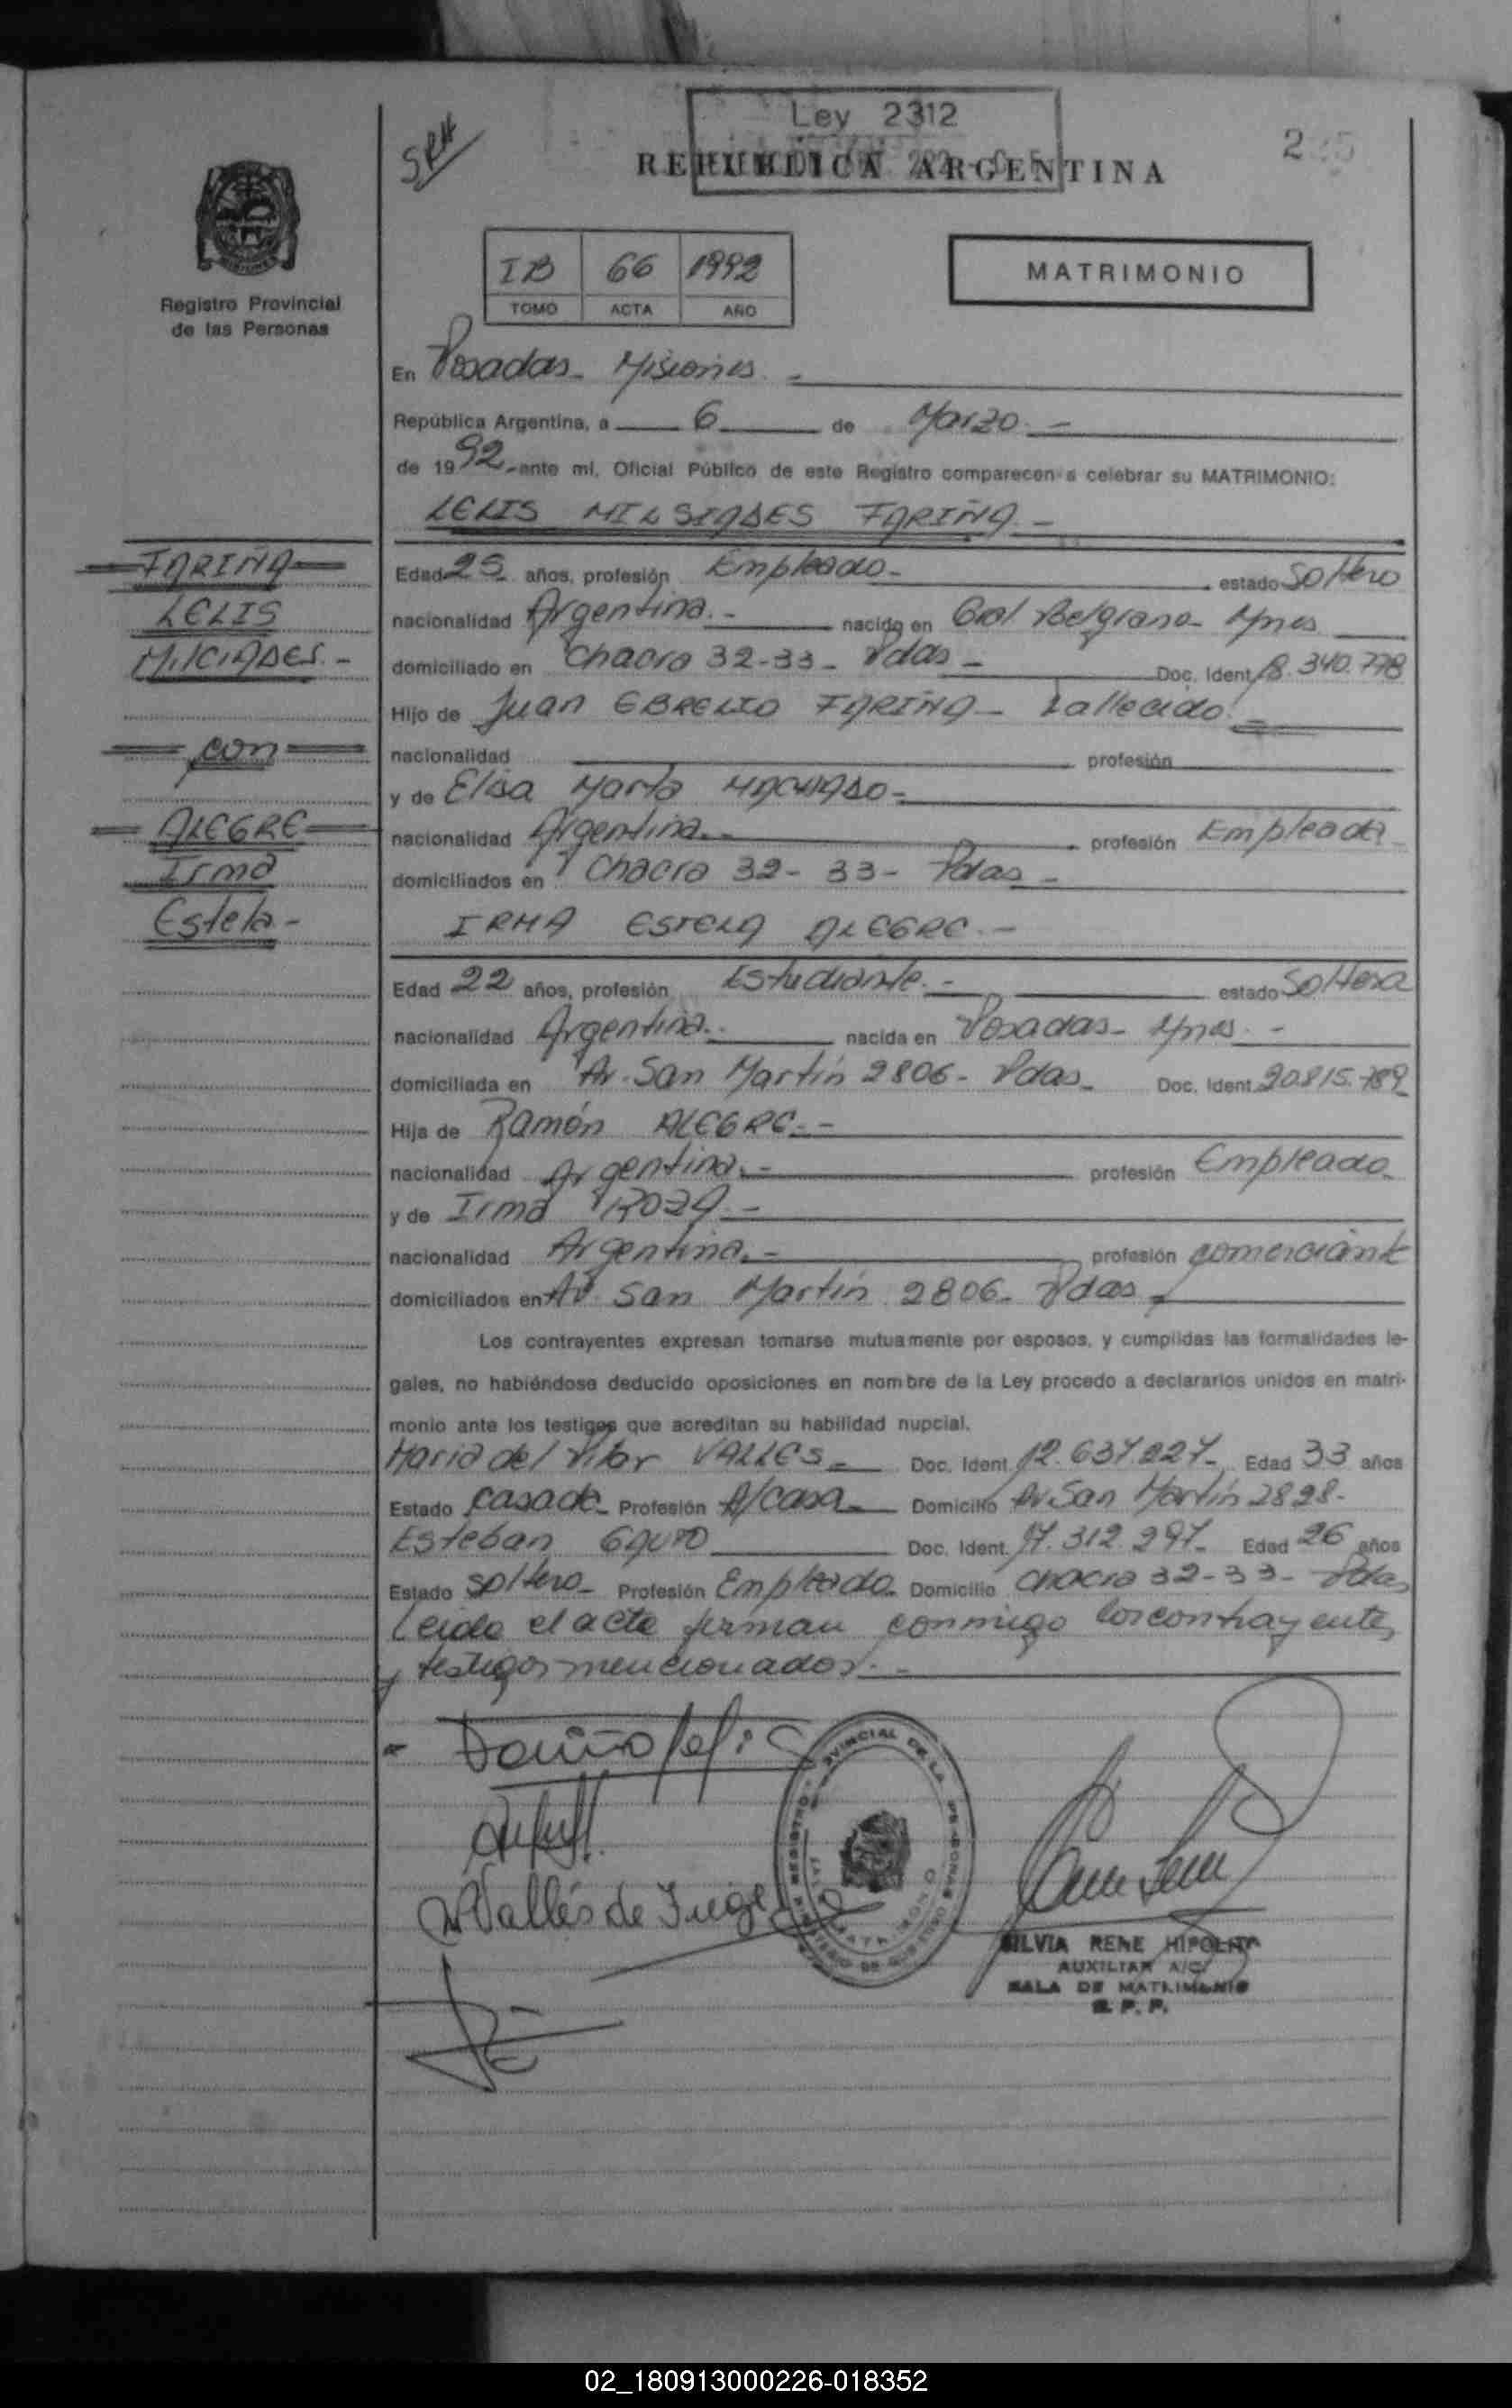 Ley 2312
SRH
REPUBLICA ARGENTINA
Registro Provincial
de las Personas
IB 66 1992
TOMO ACTA AÑO
MATRIMONIO
En Posadas - Misiones -
República Argentina, a 6 de Marzo -
de 1992 - ante mí, Oficial Público de este Registro comparecen a celebrar su MATRIMONIO:
LELIS MILSIADES FARIÑA -
FARIÑA
LELIS
MILCIADES -
con
ALEGRE
Irma
Estela -
Edad 25 años, profesión Empleado - estado Soltero
nacionalidad Argentina - nacido en Gral Belgrano - Mnes
domiciliado en Chacra 32-33 - Pdas - Doc. Ident. 18.340.778
Hijo de Juan EBRELIO FARIÑA - fallecido -
nacionalidad profesión
y de Elisa Marta MACHADO -
nacionalidad Argentina - profesión Empleada -
domiciliados en Chacra 32 - 33 - Pdas -
IRMA ESTELA ALEGRE -
Edad 22 años, profesión Estudiante - estado Soltera
nacionalidad Argentina nacida en Posadas - Mnes -
domiciliada en Av. San Martín 2806 - Pdas - Doc. Ident. 20.815.789
Hija de Ramón ALEGRE -
nacionalidad Argentina - profesión Empleado
y de Irma -
nacionalidad Argentina - profesión comerciante
domiciliados en Av San Martín 2806 - Pdas -
Los contrayentes expresan tomarse mutuamente por esposos, y cumplidas las formalidades le-
gales, no habiéndose deducido oposiciones en nombre de la Ley procedo a declararlos unidos en matri-
monio ante los testigos que acreditan su habilidad nupcial.
María del Pilar VALLES - Doc. Ident. 12.637.227 - Edad 33 años
Estado casada - Profesión A/casa - Domicilio Av San Martín 2828 -
Esteban Doc. Ident. 17.312.297 - Edad 26 años
Estado soltero - Profesión Empleado - Domicilio chacra 32-33 - Pdas
Leída el acta firman conmigo los contrayentes
y testigos mencionados -
Fariña Lelis
Valles de
SILVIA RENE HIPOLITA
AUXILIAR A/C
SALA DE MATRIMONIO
R. P. P.
02_180913000226-018352